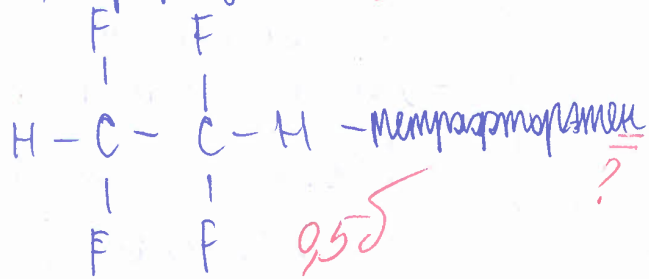 F F
H - C - C - H - тетрафторэтен
F F
?
0,5б